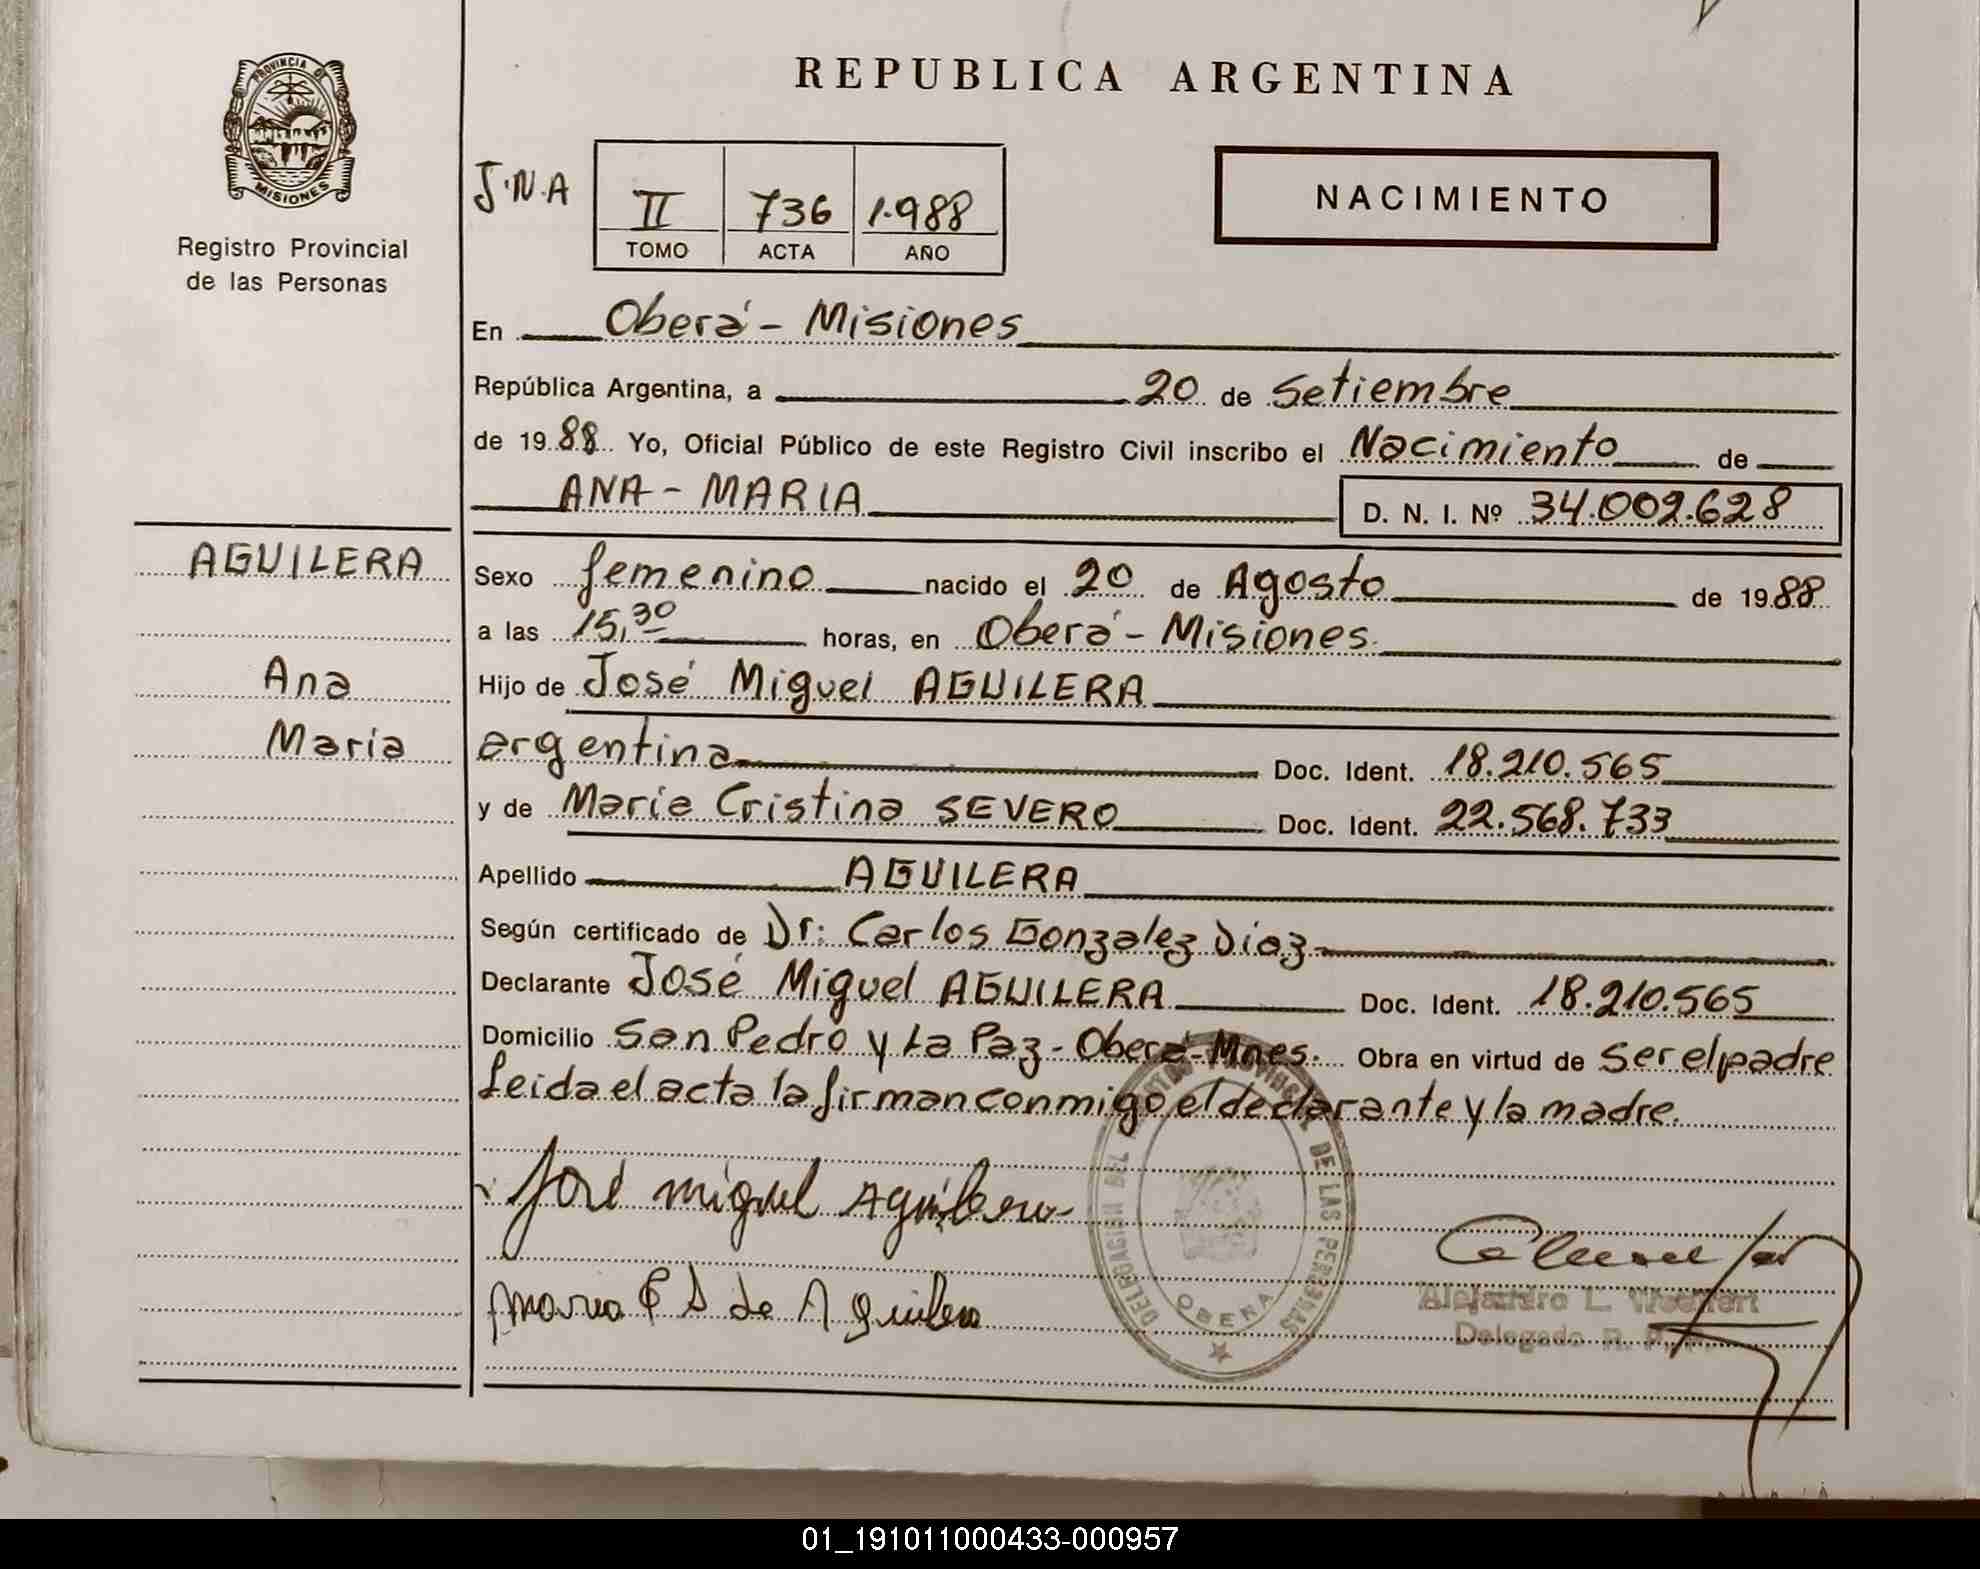 REPUBLICA ARGENTINA
PROVINCIA DE
MISIONES
Registro Provincial
de las Personas
J.N.A
II 736 1.988
TOMO ACTA AÑO
NACIMIENTO
En Oberá - Misiones
República Argentina, a 20 de Setiembre
de 1988 Yo, Oficial Público de este Registro Civil inscribo el Nacimiento de
ANA - MARIA D. N. I. Nº 34.002.628
AGUILERA
Ana
María
Sexo femenino nacido el 20 de Agosto de 1988
a las 15,30 horas, en Oberá - Misiones.
Hijo de José Miguel AGUILERA
argentina Doc. Ident. 18.210.565
y de María Cristina SEVERO Doc. Ident. 22.568.733
Apellido AGUILERA
Según certificado de Dr: Carlos Gonzalez Diaz
Declarante José Miguel AGUILERA Doc. Ident. 18.210.565
Domicilio San Pedro y La Paz - Oberá - Mnes. Obra en virtud de ser el padre
Leida el acta la firman conmigo el declarante y la madre.
José Miguel Aguilera
Maria C S de Aguilera
DELEGACION DEL REGISTRO PROVINCIAL DE LAS PERSONAS
OBERA
Alejandro L.
Delegado R. P. P.
01_191011000433-000957